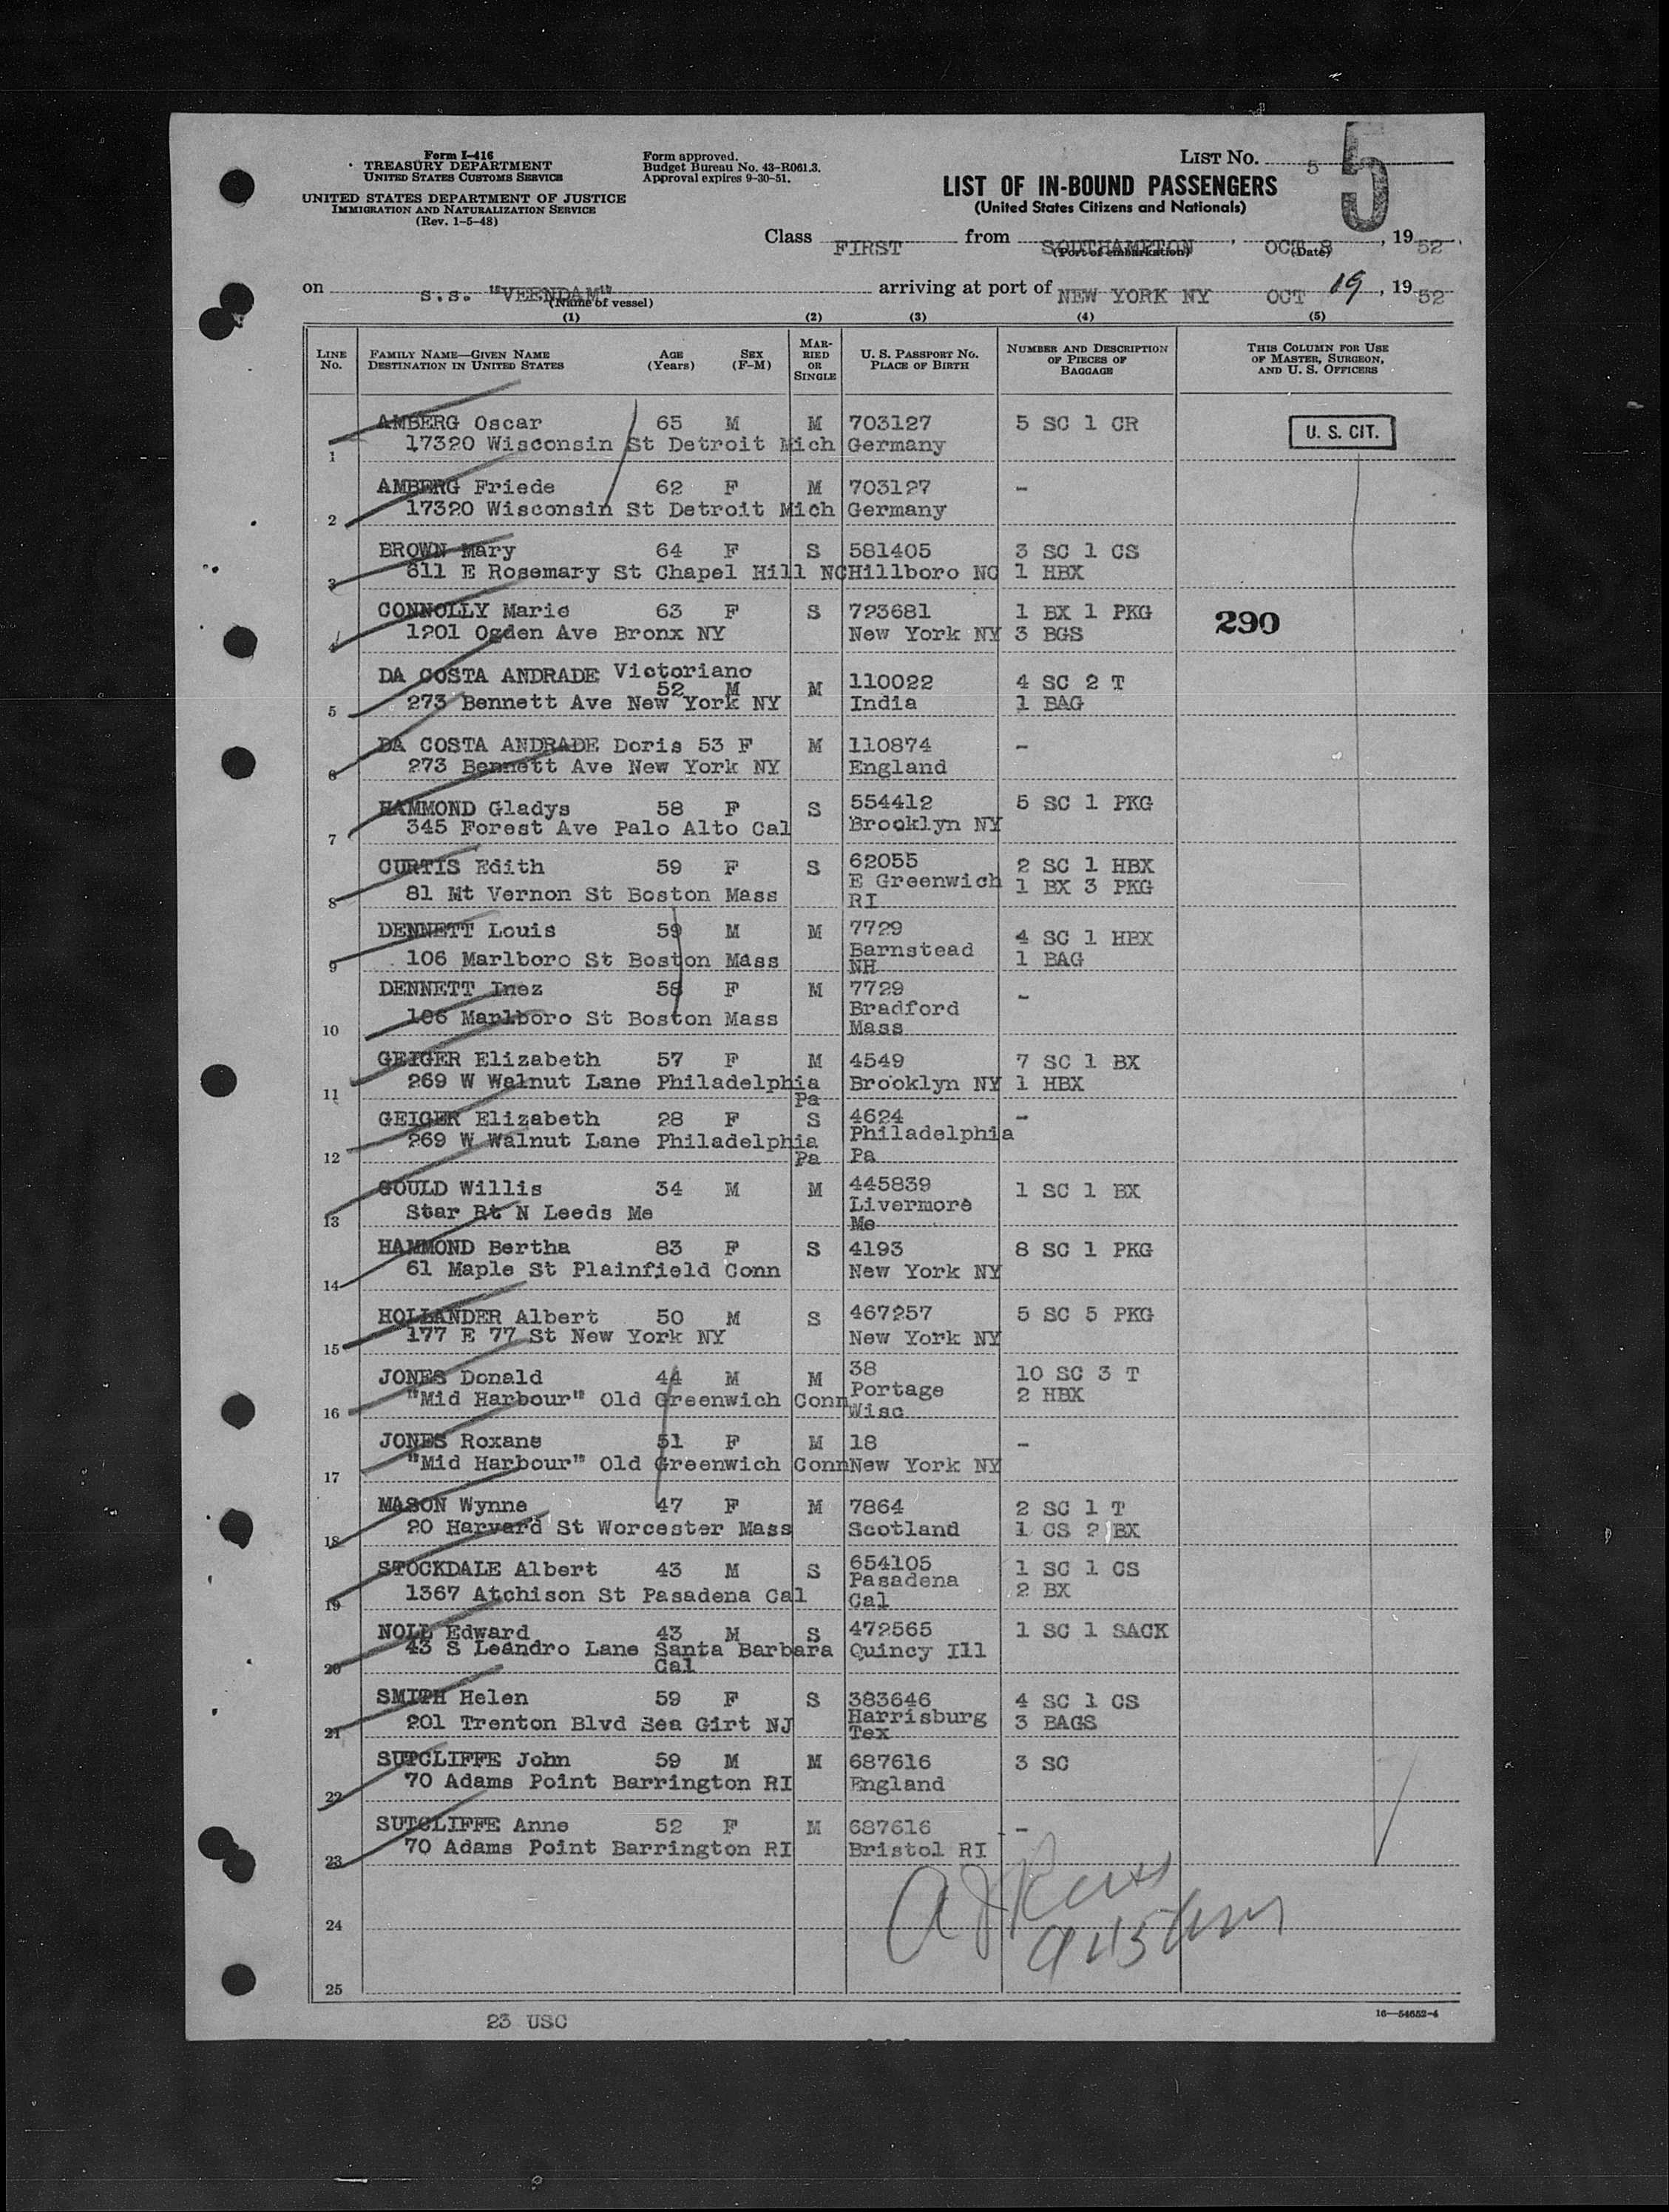 Form I-416
TREASURY DEPARTMENT
UNITED STATES CUSTOMS SERVICE
UNITED STATES DEPARTMENT OF JUSTICE
IMMIGRATION AND NATURALIZATION SERVICE
(Rev. 1-5-48)
Form approved.
Budget Bureau No. 43-R061.3.
Approval expires 9-30-51.
LIST NO. 5
5
LIST OF IN-BOUND PASSENGERS
(United States Citizens and Nationals)
Class FIRST from SOUTHAMPTON, OCT 8, 1952
(Port of embarkation) (Date)
on s.s. "VEENDAM" arriving at port of NEW YORK NY OCT 19, 1952
(Name of vessel)
(1) (2) (3) (4) (5)
LINE NO. FAMILY NAME—GIVEN NAME DESTINATION IN UNITED STATES AGE (Years) SEX (F-M) MARRIED OR SINGLE U. S. PASSPORT NO. PLACE OF BIRTH NUMBER AND DESCRIPTION OF PIECES OF BAGGAGE THIS COLUMN FOR USE OF MASTER, SURGEON, AND U. S. OFFICERS
AMBERG Oscar 65 M M 703127 5 SC 1 CR U. S. CIT.
1 17320 Wisconsin St Detroit Mich Germany
AMBERG Friede 62 F M 703127 -
2 17320 Wisconsin St Detroit Mich Germany
BROWN Mary 64 F S 581405 3 SC 1 CS
3 611 E Rosemary St Chapel Hill NC Hillboro NC 1 HBX
CONNOLLY Marie 63 F S 723681 1 BX 1 PKG 290
4 1201 Ogden Ave Bronx NY New York NY 3 BGS
DA COSTA ANDRADE Victoriano 52 M M 110022 4 SC 2 T
5 273 Bennett Ave New York NY India 1 BAG
DA COSTA ANDRADE Doris 53 F M 110874 -
6 273 Bennett Ave New York NY England
HAMMOND Gladys 58 F S 554412 5 SC 1 PKG
7 345 Forest Ave Palo Alto Cal Brooklyn NY
CURTIS Edith 59 F S 62055 2 SC 1 HBX
8 81 Mt Vernon St Boston Mass E Greenwich RI 1 BX 3 PKG
DENNETT Louis 59 M M 7729 4 SC 1 HBX
9 106 Marlboro St Boston Mass Barnstead NH 1 BAG
DENNETT Inez 58 F M 7729 -
10 106 Marlboro St Boston Mass Bradford Mass
GEIGER Elizabeth 57 F M 4549 7 SC 1 BX
11 269 W Walnut Lane Philadelphia Pa Brooklyn NY 1 HBX
GEIGER Elizabeth 28 F S 4624 -
12 269 W Walnut Lane Philadelphia Pa Philadelphia Pa
GOULD Willis 34 M M 445839 1 SC 1 BX
13 Star Rt N Leeds Me Livermore Me
HAMMOND Bertha 83 F S 4193 8 SC 1 PKG
14 61 Maple St Plainfield Conn New York NY
HOLLANDER Albert 50 M S 467257 5 SC 5 PKG
15 177 E 77 St New York NY New York NY
JONES Donald 44 M M 38 10 SC 3 T
16 "Mid Harbour" Old Greenwich Conn Portage Wisc 2 HBX
JONES Roxane 51 F M 18 -
17 "Mid Harbour" Old Greenwich Conn New York NY
MASON Wynne 47 F M 7864 2 SC 1 T
18 20 Harvard St Worcester Mass Scotland 1 CS 2 BX
STOCKDALE Albert 43 M S 654105 1 SC 1 CS
19 1367 Atchison St Pasadena Cal Pasadena Cal 2 BX
NOLL Edward 43 M S 472565 1 SC 1 SACK
20 43 S Leandro Lane Santa Barbara Cal Quincy Ill
SMITH Helen 59 F S 383646 4 SC 1 CS
21 201 Trenton Blvd Sea Girt NJ Harrisburg Tex 3 BAGS
SUTCLIFFE John 59 M M 687616 3 SC
22 70 Adams Point Barrington RI England
SUTCLIFFE Anne 52 F M 687616 -
23 70 Adams Point Barrington RI Bristol RI
24
25
23 USC
16—54652-4